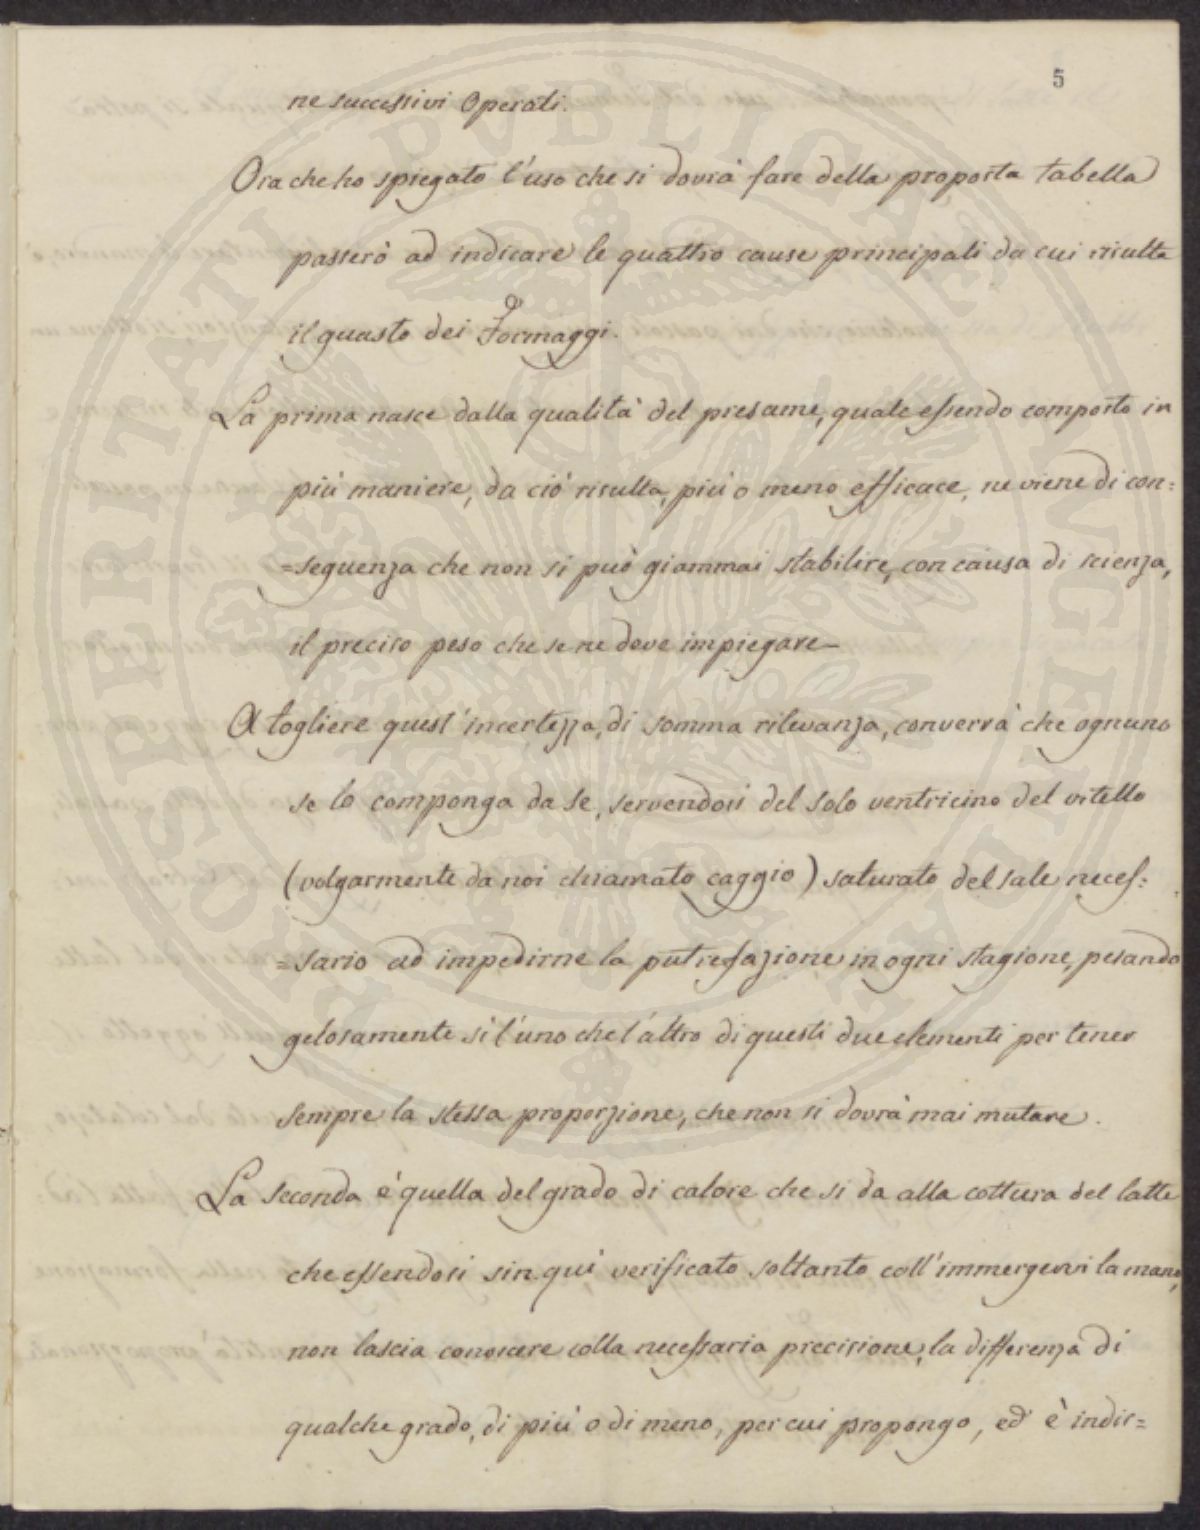 5
ne successivi Operati.
Ora che ho spiegato l'uso che si dovrà fare della proposta tabella
passerò ad indicare le quattro cause principali da cui risulta
il guasto dei Formaggi.
La prima nasce dalla qualità del presame, quale essendo composto in
più maniere, da ciò risulta, più o meno efficace, ne viene di con=
=seguenza che non si può giammai stabilire, con causa di scienza,
il preciso peso che se ne deve impiegare_
A togliere quest'incertezza, di somma rilevanza, converrà che ognuno
se lo componga da se, servendosi del solo ventricino del vitello
(volgarmente da noi chiamato caggio) saturato del sale neces=
=sario ad impedirne la putrefazione in ogni stagione, pesando
gelosamente sì l'uno che l'altro di questi due elementi per tener
sempre la stessa proporzione, che non si dovrà mai mutare.
La seconda è quella del grado di calore che si da alla cottura del latte
che essendosi sin qui, verificato soltanto coll'immergervi la mano,
non lascia conoscere colla necessaria precisione, la differenza di
qualche grado, di più o di meno, per cui propongo, ed è indis=
PROSPERITATI PUBLICAE AUGENDAE